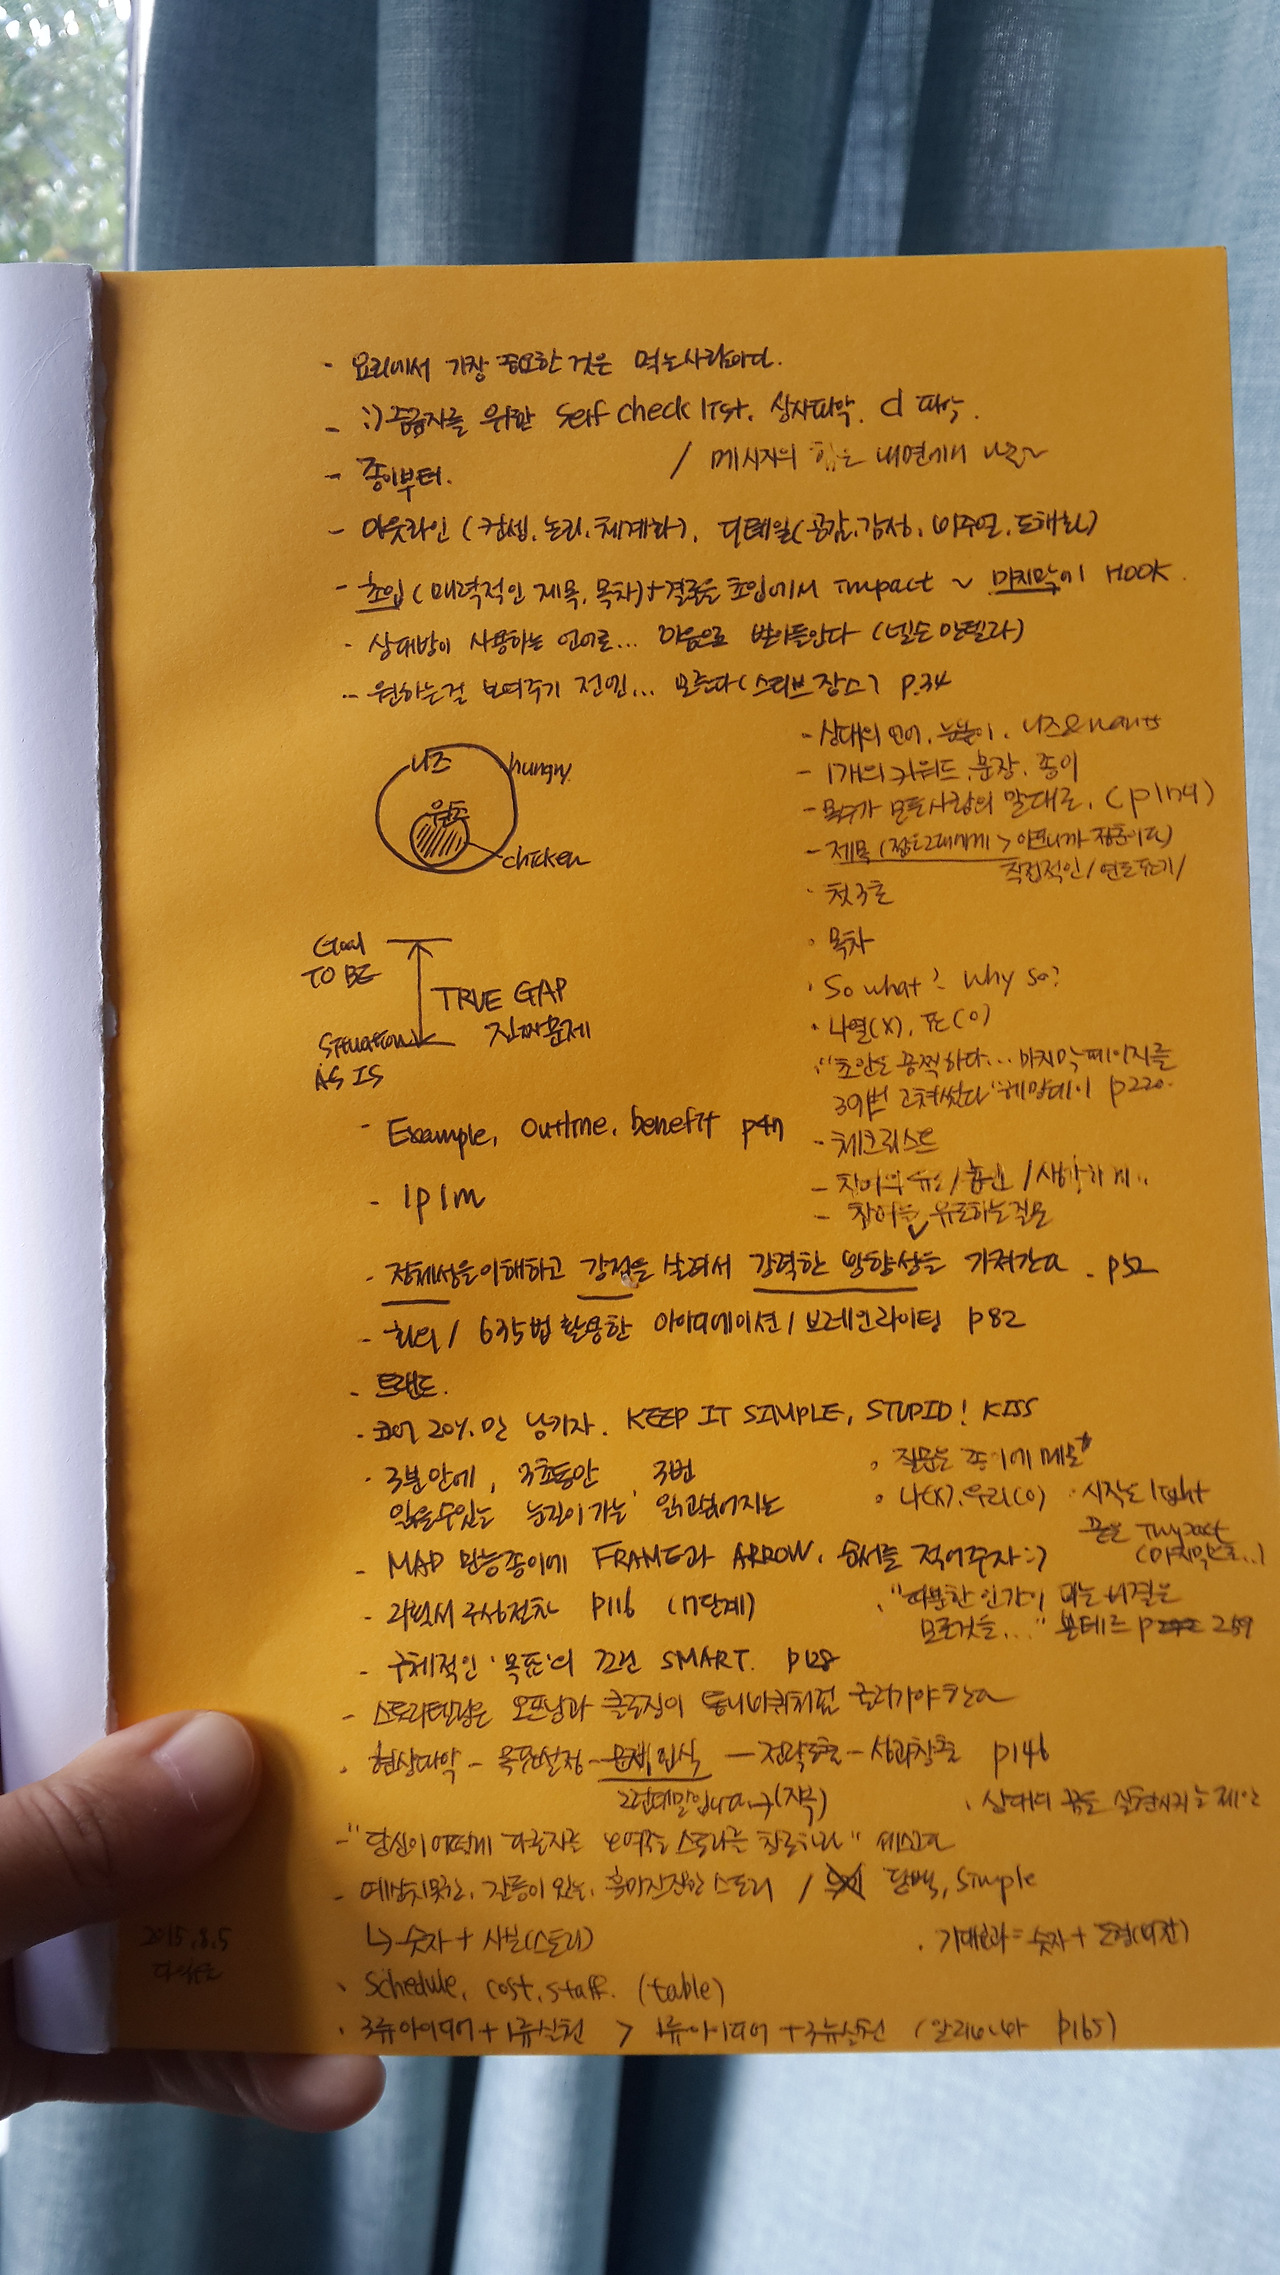 - 요리에서 가장 중요한 것은 먹는사람이다.
- :) 공급자를 위한 Self check list. 상사파악. d 파악.
/ 메시지의 힘은 내면에서 나온~
- 종이부터.
- 아웃라인 (컨셉, 논리, 체계화), 디테일(공감, 감성, 비주얼, 도해화)
- 초입 (매력적인 제목, 목차)+결론을 초입에서 Impact ~ 마지막에 HOOK.
- 상대방이 사용하는 언어로... 마음으로 받아들인다 (넬슨만델라)
- 원하는걸 보여주기 전엔... 모른다 (스티브잡스) p.34
니즈
hungry
원츠
chicken
- 상대의 언어, 눈높이, 니즈&wants
- 1개의 키워드, 문장, 종이
- 독수가 모든사람의 말대로,
- 제목
직접적인/
· 첫 3초
· 목차
· So what? Why so?
· 나열(X), 표(O)
· "초안은 끔찍하다... 마지막페이지를
39번 고쳐썼다" 헤밍웨이 p220.
- 체크리스트
- 참여의 /생각하게..
- 참여를 유도하는질문
Goal
TO BE
TRUE GAP
진짜문제
Situation
AS IS
- Example, Outline, benefit p47
- 1p 1m
- 전체성을이해하고 강점을 살려서 강력한 방향성을 가져간다. p52
- 회의 / 635법 활용한 아이디에이션 / 브레인라이팅 p82
- 트랜드.
- 코어 20%만 남기자. KEEP IT SIMPLE, STUPID! KISS
· 3분안에, 3초동안 3번
읽을수있는 눈길이가는 읽고싶어지는
· 질문은 종이에 메모*
· 나(X), 우리(O)
· 시작은 light
끝은 Impact
- MAP 만능종이에 FRAME과 ARROW, 순서를 적어주자 :)
- 기획서 구성절차 p116 (17단계)
· "따분한 인간이 되는 비결은
모든것을..." 볼테르 p 259
- 구체적인 '목표'의 조건 SMART. p128
- 스토리텔링은 오프닝과 클로징이 톱니바퀴처럼 굴러가야한다
· 현상파악 - 목표설정 - 문제인식 - 전략도출 - 성과창출 p146
그런데말입니다
· 상대의 꿈을 실현시키는 제안
- "당신이 어떻게 다른지를 보여주는 스토리를 창조하라"
- 예상치못한, 갈등이 있는, 흥미진진한 스토리 / 담백, Simple
↳ 숫자 + 사실(스토리)
· 기대효과 = 숫자 + 도형(비전)
· Schedule, cost, staff. (table)
· 3류아이디어 + 1류실천 > 1류아이디어 + 3류실천 (알리바바 p165)
2015.8.5